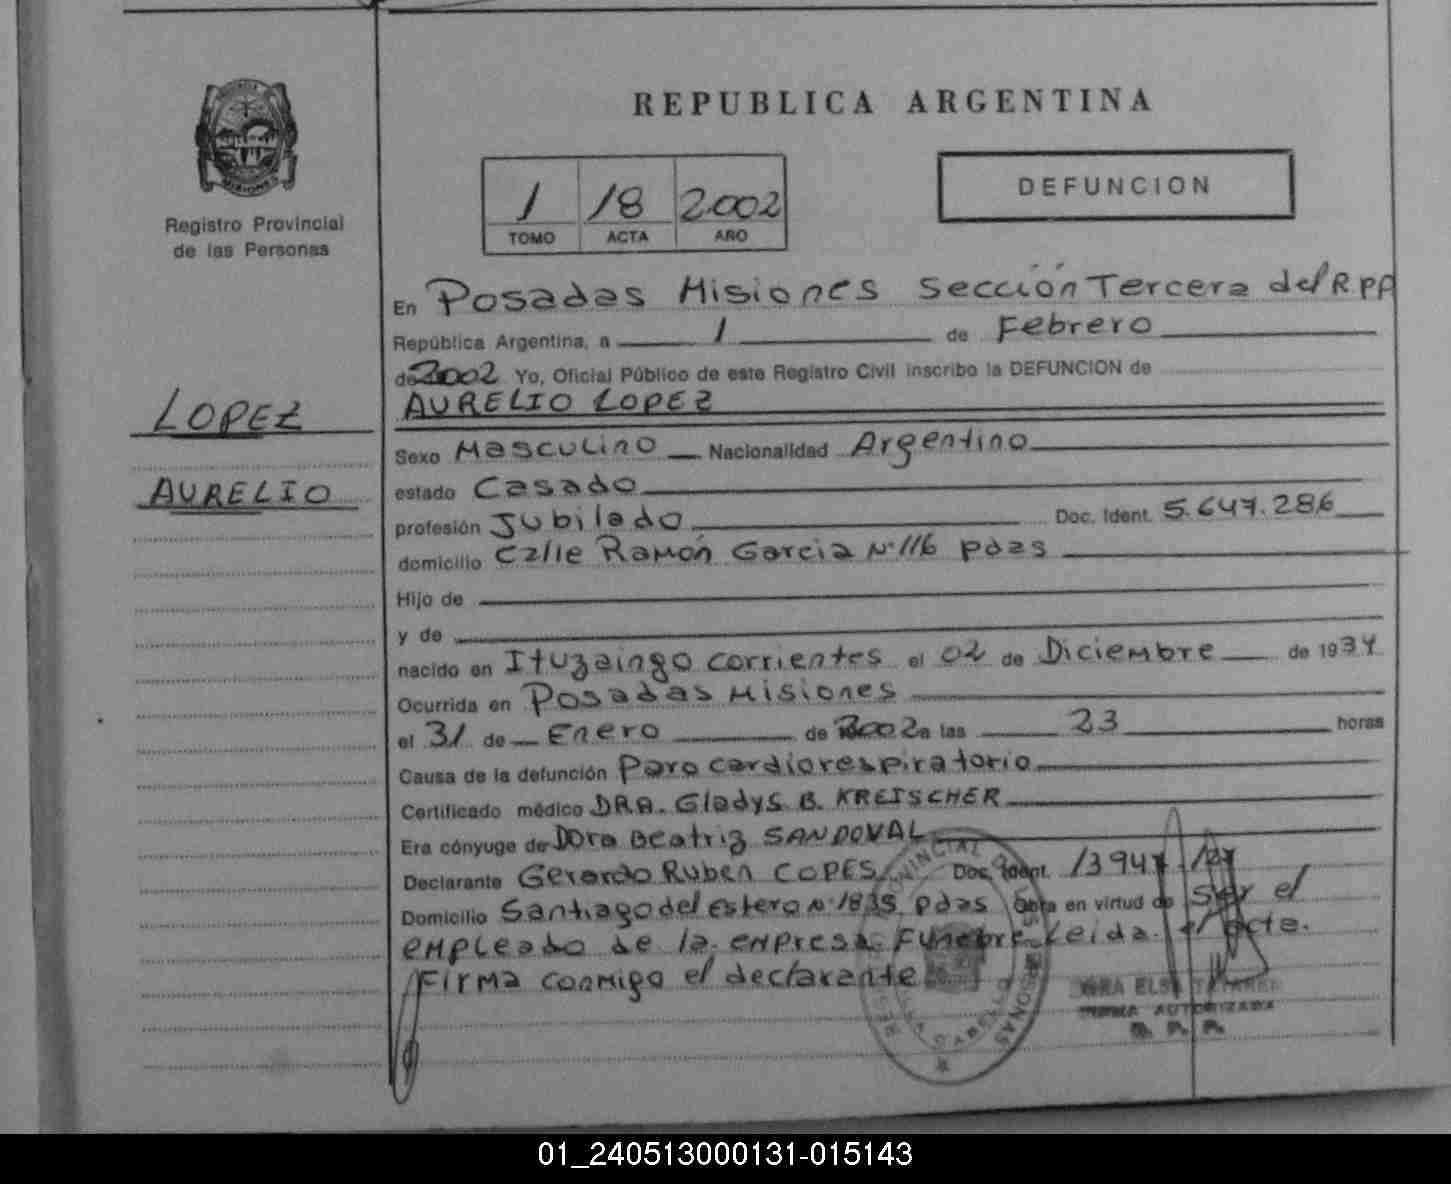 REPUBLICA ARGENTINA
MISIONES
Registro Provincial
de las Personas
1 18 2002
TOMO ACTA AÑO
DEFUNCION
En Posadas Misiones Sección Tercera del R.P.P
República Argentina, a 1 de Febrero
de 2002 Yo, Oficial Público de este Registro Civil inscribo la DEFUNCION de
AURELIO LOPEZ
LOPEZ
AURELIO
Sexo Masculino Nacionalidad Argentino
estado Casado
profesión Jubilado Doc. Ident. 5.647.286
domicilio Calle Ramón Garcia Nº 116 pdas
Hijo de
y de
nacido en Ituzaingo corrientes el 02 de Diciembre de 1934
Ocurrida en Posadas Misiones
el 31 de Enero de 2002 a las 23 horas
Causa de la defunción Paro cardiorespiratorio
Certificado médico DRA. Gladys B. KREISCHER
Era cónyuge de Dora Beatriz SANDOVAL
Declarante Gerardo Ruben COPES Doc. Ident.
Domicilio Santiago del estero Nº 1835 pdas Obra en virtud de ser el
empleado de la empresa Funebre Leida el acta.
Firma conmigo el declarante
FIRMA AUTORIZADA
R. P. P.
01_240513000131-015143